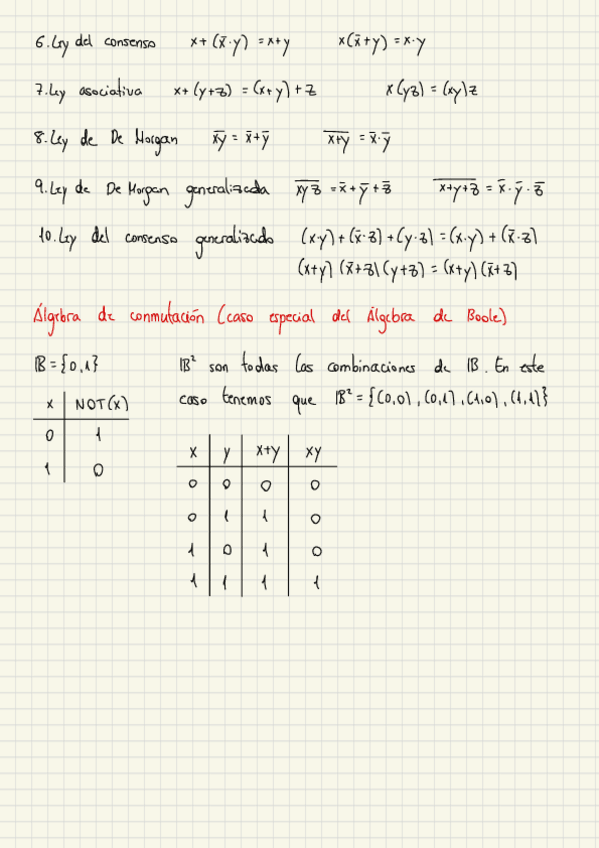 6. Ley del consenso x + (x̄·y) = x+y x(x̄+y) = x·y
7. Ley asociativa x + (y+z) = (x+y) + z x(yz) = (xy)z
8. Ley de De Morgan x̅y̅ = x̄+ȳ x̅+̅y̅ = x̄·ȳ
9. Ley de De Morgan generalizada x̅y̅z̅ = x̄ + ȳ + z̄ x̅+̅y̅+̅z̅ = x̄·ȳ·z̄
10. Ley del consenso generalizado (x·y) + (x̄·z) + (y·z) = (x·y) + (x̄·z)
(x+y) (x̄+z) (y+z) = (x+y) (x̄+z)
Álgebra de conmutación (caso especial del Álgebra de Boole)
𝔹 = {0,1} 𝔹² son todas las combinaciones de 𝔹. En este
caso tenemos que 𝔹² = {(0,0), (0,1), (1,0), (1,1)}
x NOT(x)
0 1
1 0
x y x+y xy
0 0 0 0
0 1 1 0
1 0 1 0
1 1 1 1